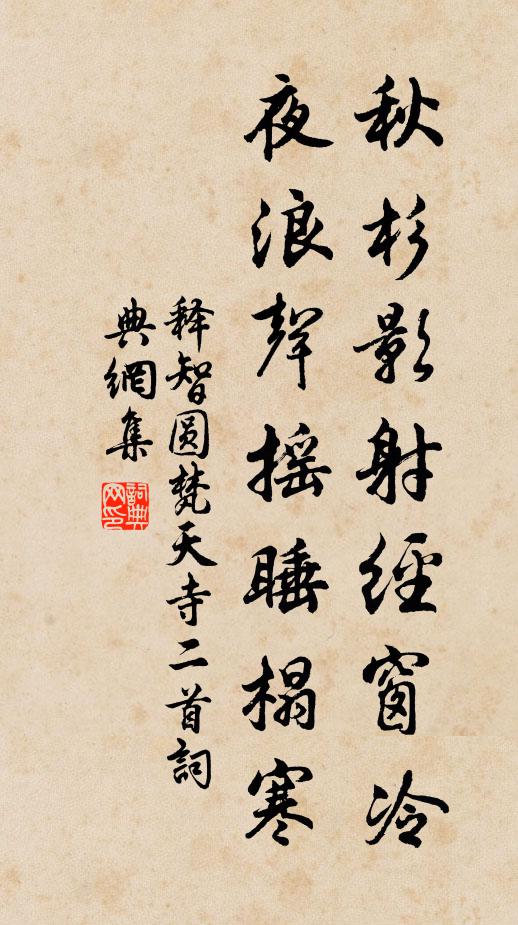 秋杉影射經窗冷
夜浪聲摇睡榻寒
释智圆梵天寺二首詞
典網集
詞典
网印